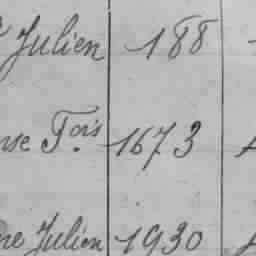 Julien 188
nse F.ois 1673
ne Julien 1930